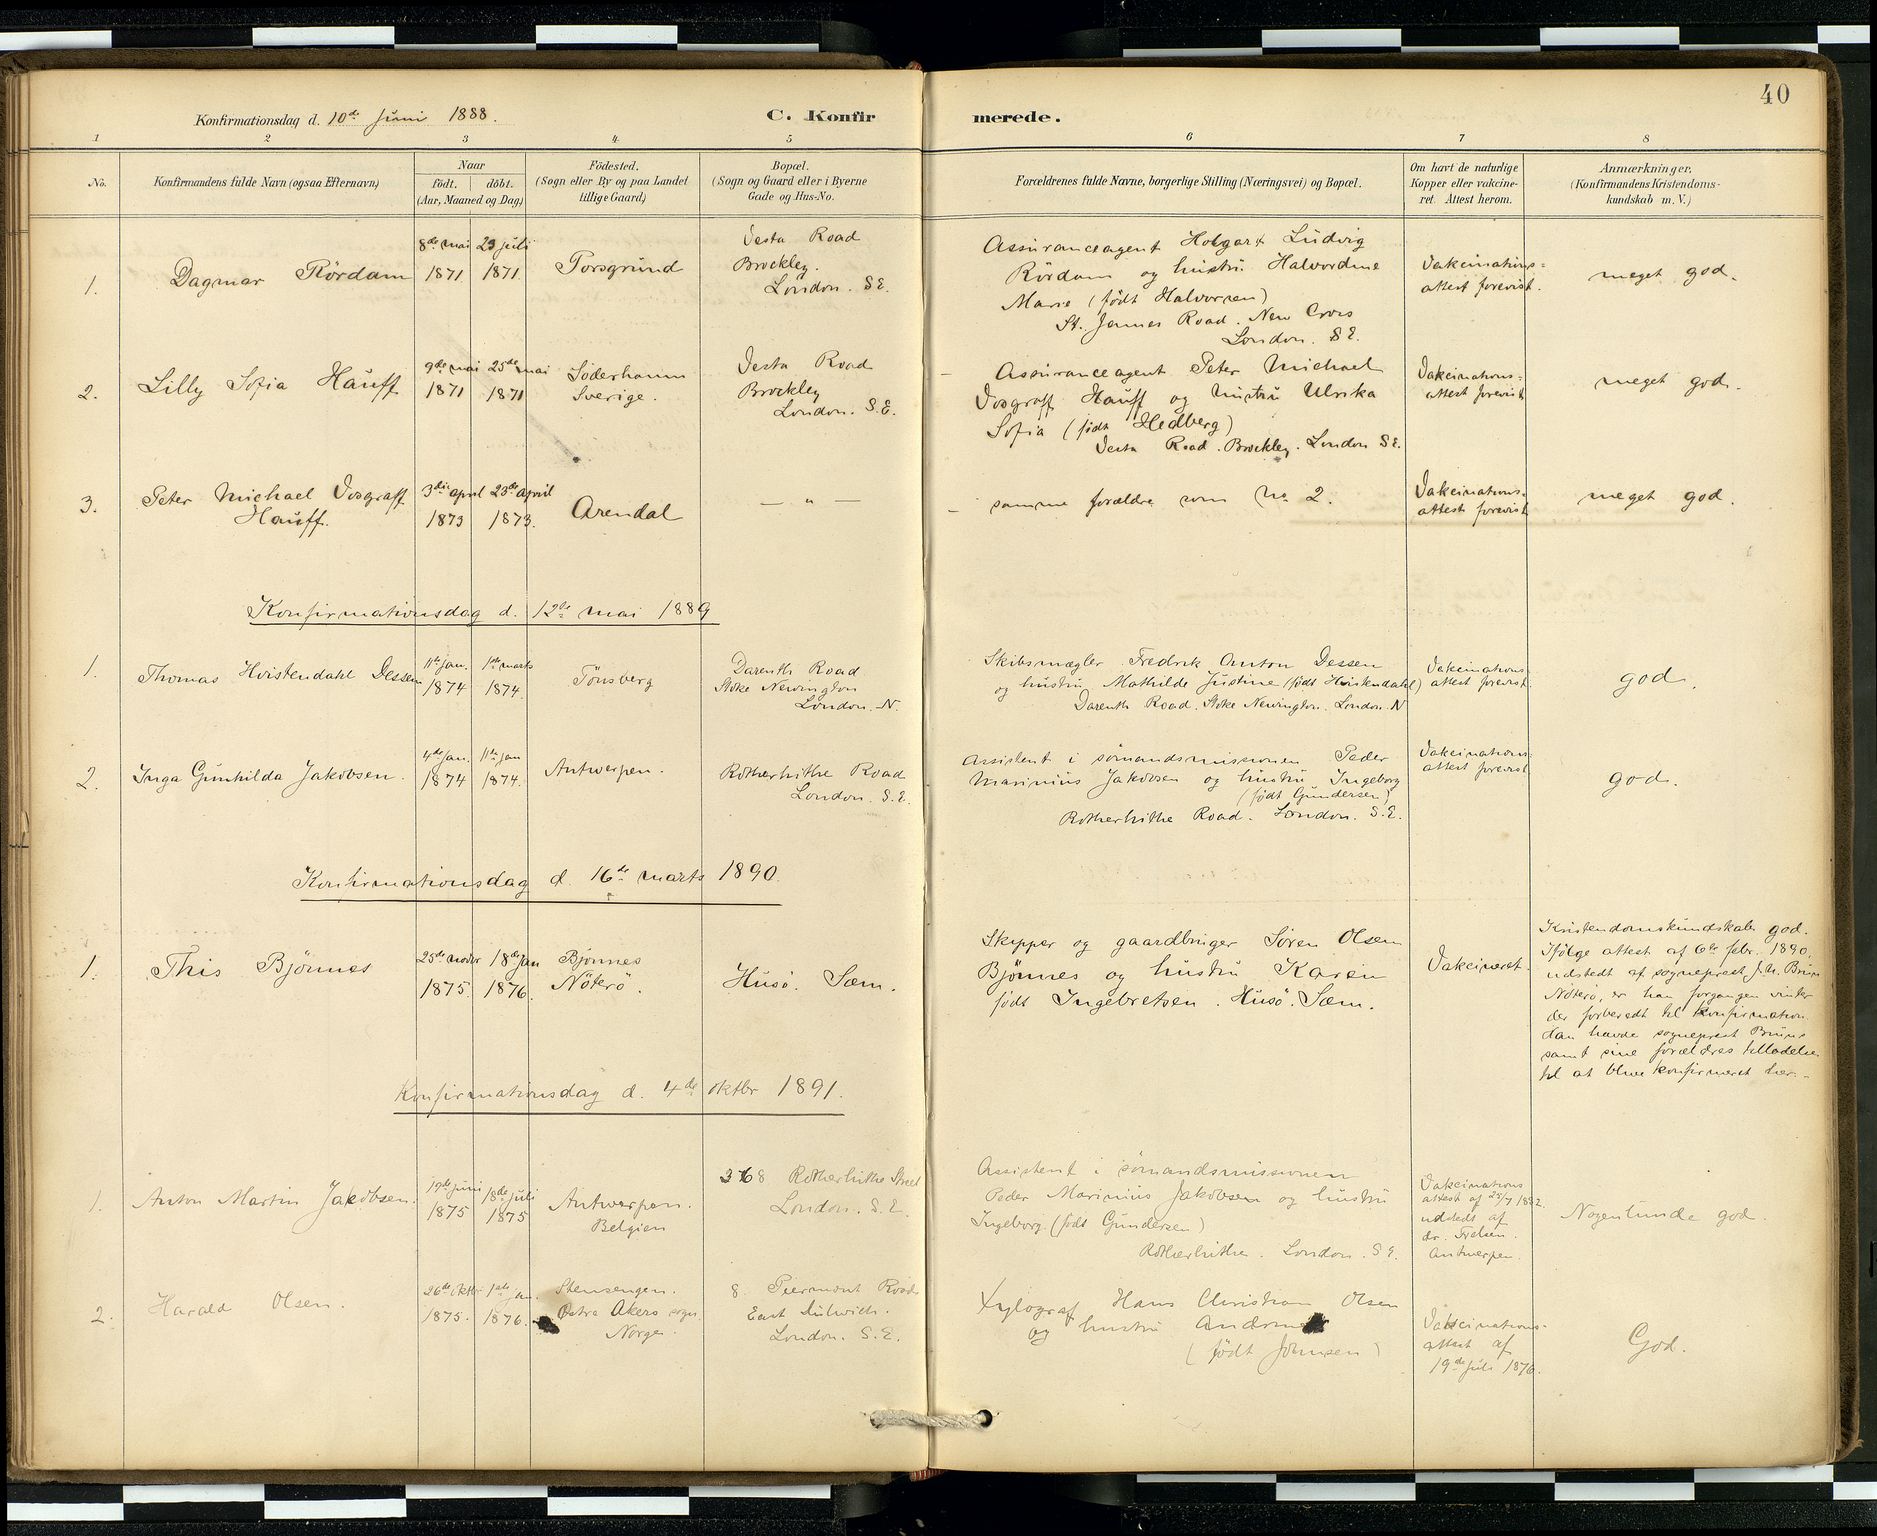 40
Konfirmationsdag d. 10de Juni 1888.
C. Konfirmerede.
1 2 3 4 5 6 7 8
No.
Konfirmandens fulde Navn (ogsaa Efternavn)
Naar
födt. döbt.
(Aar, Maaned og Dag)
Födested.
(Sogn eller By og paa Landet
tillige Gaard)
Bopæl.
(Sogn og Gaard eller i Byerne
Gade og Hus-No.
Forældrenes fulde Navne, borgerlige Stilling (Næringsvei) og Bopæl.
Om havt de naturlige
Kopper eller vakcine-
ret. Attest herom.
Anmærkninger.
(Konfirmandens Kristendoms-
kundskab m. V.)
1.
Dagmar Rördam
8de mai
1871
29 juli
1871.
Porsgrund
Vesta Road
Brockley.
London. S.E.
Assuranceagent Holgart Ludvig
Rördam og hustru Halvordine
Marie (født Halvorsen)
St. James Road. New Cross
London. S.E.
Vakcinations=
attest forevist.
meget god.
2.
Lilly Sofia Hauff
9de mai
1871
25de mai
1871
Söderhamn
Sverige.
Vesta Road
Brockley
London. S.E.
Assuranceagent Peter Michael
Vosgraff Hauff og hustru Ulrika
Sofia (født Hedberg)
Vesta Road. Brockley. London S.E.
Vakcinations=
attest forevist
meget god.
3.
Peter Michael Vosgraff
Hauff.
3die april
1873
23de april
1873.
Arendal
— " —
samme forældre som No 2.
Vakcinations=
attest forevist
meget god.
Konfirmationsdag d. 12de mai 1889
1.
Thomas Hvistendahl Dessen
11te jan.
1874
1ste marts
1874.
Tönsberg
Darenth Road
Stoke Newington
London. N.
Skibsmægler Fredrik Anton Dessen
og hustru Mathilde Justine (født Hvistendahl)
Darenth Road. Stoke Newington. London. N
Vakcinations
attest forevist.
god.
2.
Inga Gunhilda Jakobsen.
4de jan.
1874
11te jan
1874.
Antwerpen.
Rotherhithe Road
London. S.E.
Assistent i sömandsmissionen Peder
Marinius Jakobsen og hustru Ingeborg
(født Gundersen)
Rotherhithe Road. London. S.E.
Vakcinations=
attest forevist
god.
Konfirmationsdag d. 16de marts 1890.
1.
This Bjönnes
25de novbr
1875.
18de jan
1876.
Bjönnes
Nöterö.
Husö. Sæm.
Skipper og gaardbruger Sören Olsen
Bjönnes og hustru Karen
født Ingebretsen. Husö. Sæm.
Vakcineret.
Kristendomskundskab god.
Ifølge attest af 6te febr. 1890,
udstedt af sogneprest J. N. Bruun
Nöterö, er han forgangen vinter
der forberedt til konfirmation.
Han havde sogneprest Bruuns
samt sine forældres tilladelse
til at blive konfirmeret her.-
Konfirmationsdag d. 4de oktbr 1891.
1.
Anton Martin Jakobsen.
19de juni
1875
18de juli
1875
Antwerpen.
Belgien
368 Rotherhithe Street
London. S.E.
Assistent i sömandsmissionen
Peder Marinius Jakobsen og hustru
Ingeborg. (født Gundersen)
Rotherhithe. London. S.E.
Vakcinations
attest af 25/7 1882.
uddstedt af
dr.
Antwerpen.
Nogenlunde god.
2.
Harald Olsen.
26de oktbr
1875.
1ste jan.
1876.
Stensengen.
Östre Akers sogn.
Norge.
8. Piermont Road
East Dulwich.
London. S.E.
Xylograf Hans Christian Olsen
og hustru
(født Johnsen)
Vakcinations-
attest af
19de juli 1876.
God.